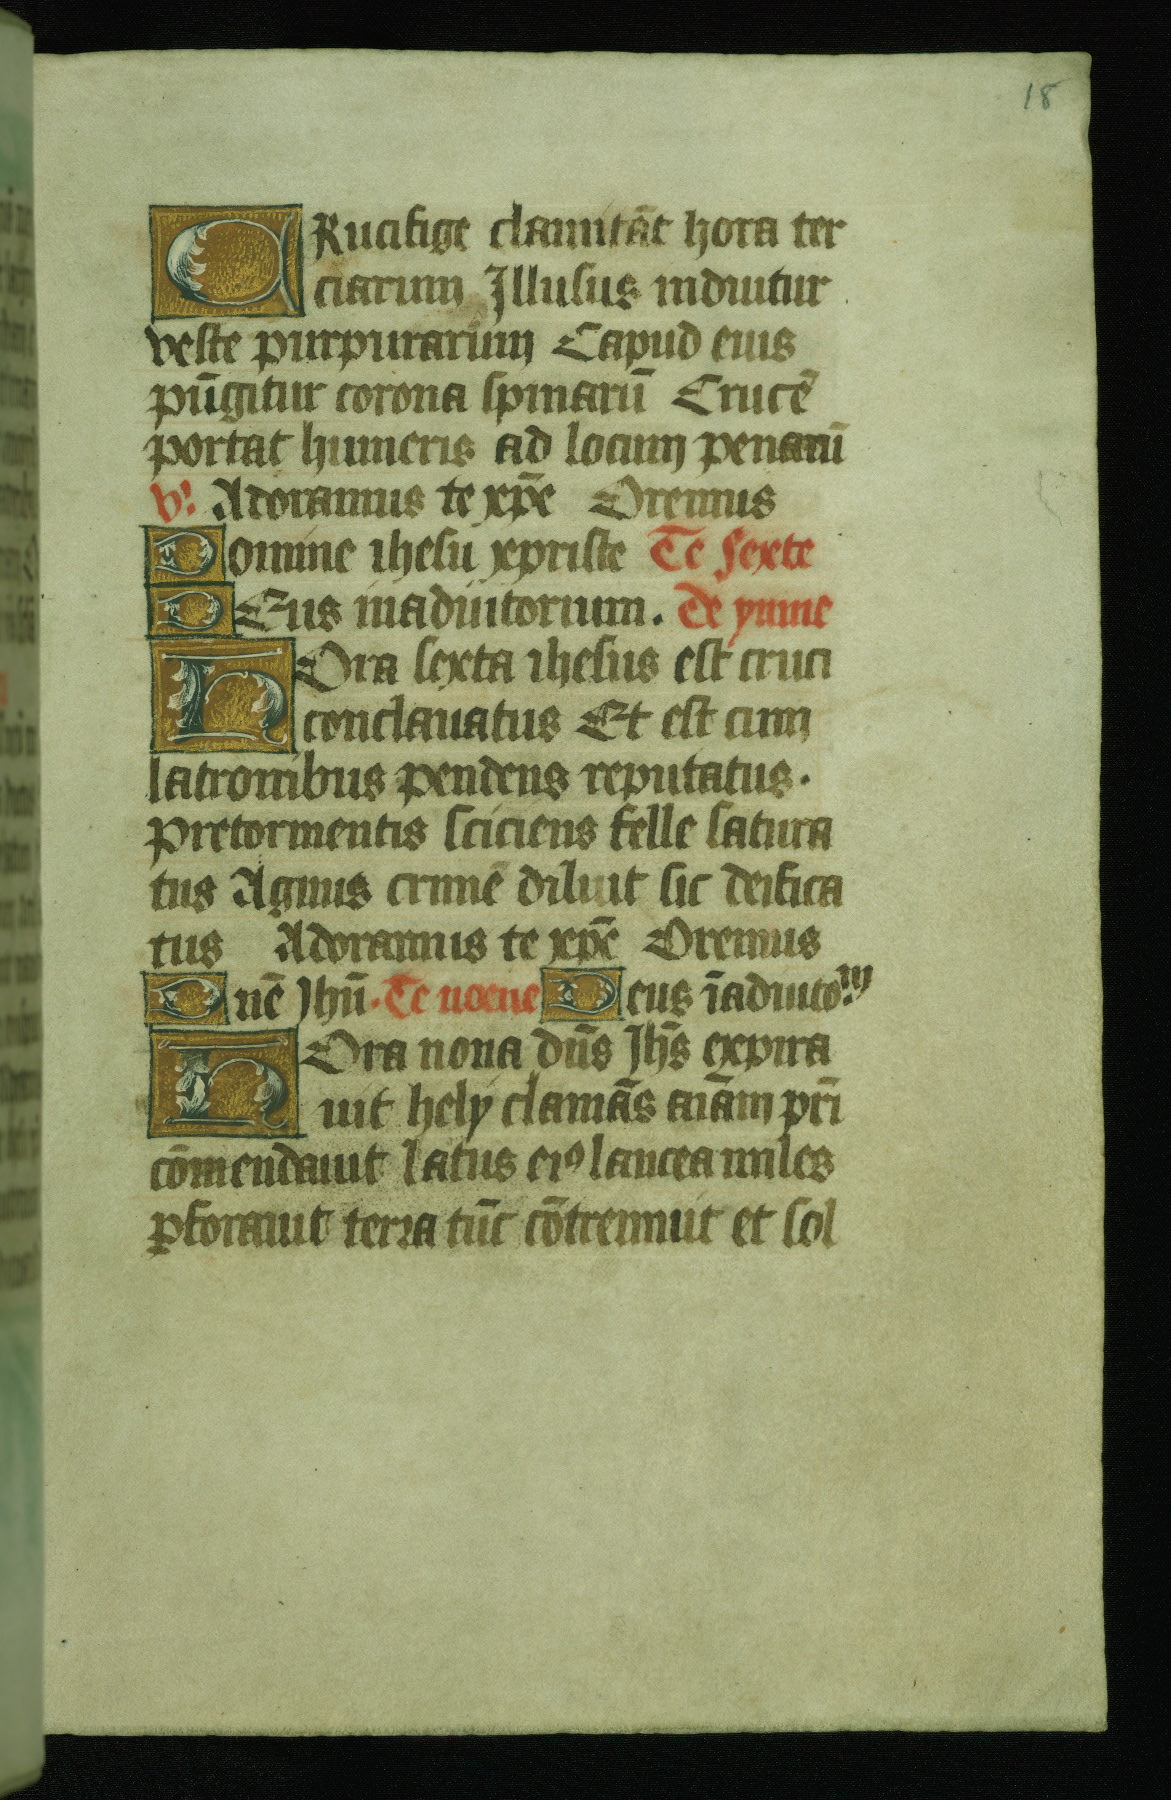 18
CRucifige clamitāt hora ter
ciarum Illusus induitur
veste purpurarum Capud eius
pūgitur corona spinarū Crucē
portat humeris ad locum penarū
V. Adoramus te xp̄e Oremus
Domine ihesu xpriste Te sexte
DEus inadiutorium. De ymne
hOra sexta ihesus est cruci
conclauatus Et est cum
latronibus pendens reputatus.
Pretormentis sciciens felle satura
tus Agnus crimē diluit sic deifica
tus Adoramus te xp̄e Oremus
Dn̄e Jhū. Te noene Deus īadiutoᵐ
hOra nona dn̄s Jhs̄ expira
uit hely clamās aīam pr̄i
cōmendauit latus eiꝰ lancea miles
ꝑforauit terra tūc cōtremuit et sol